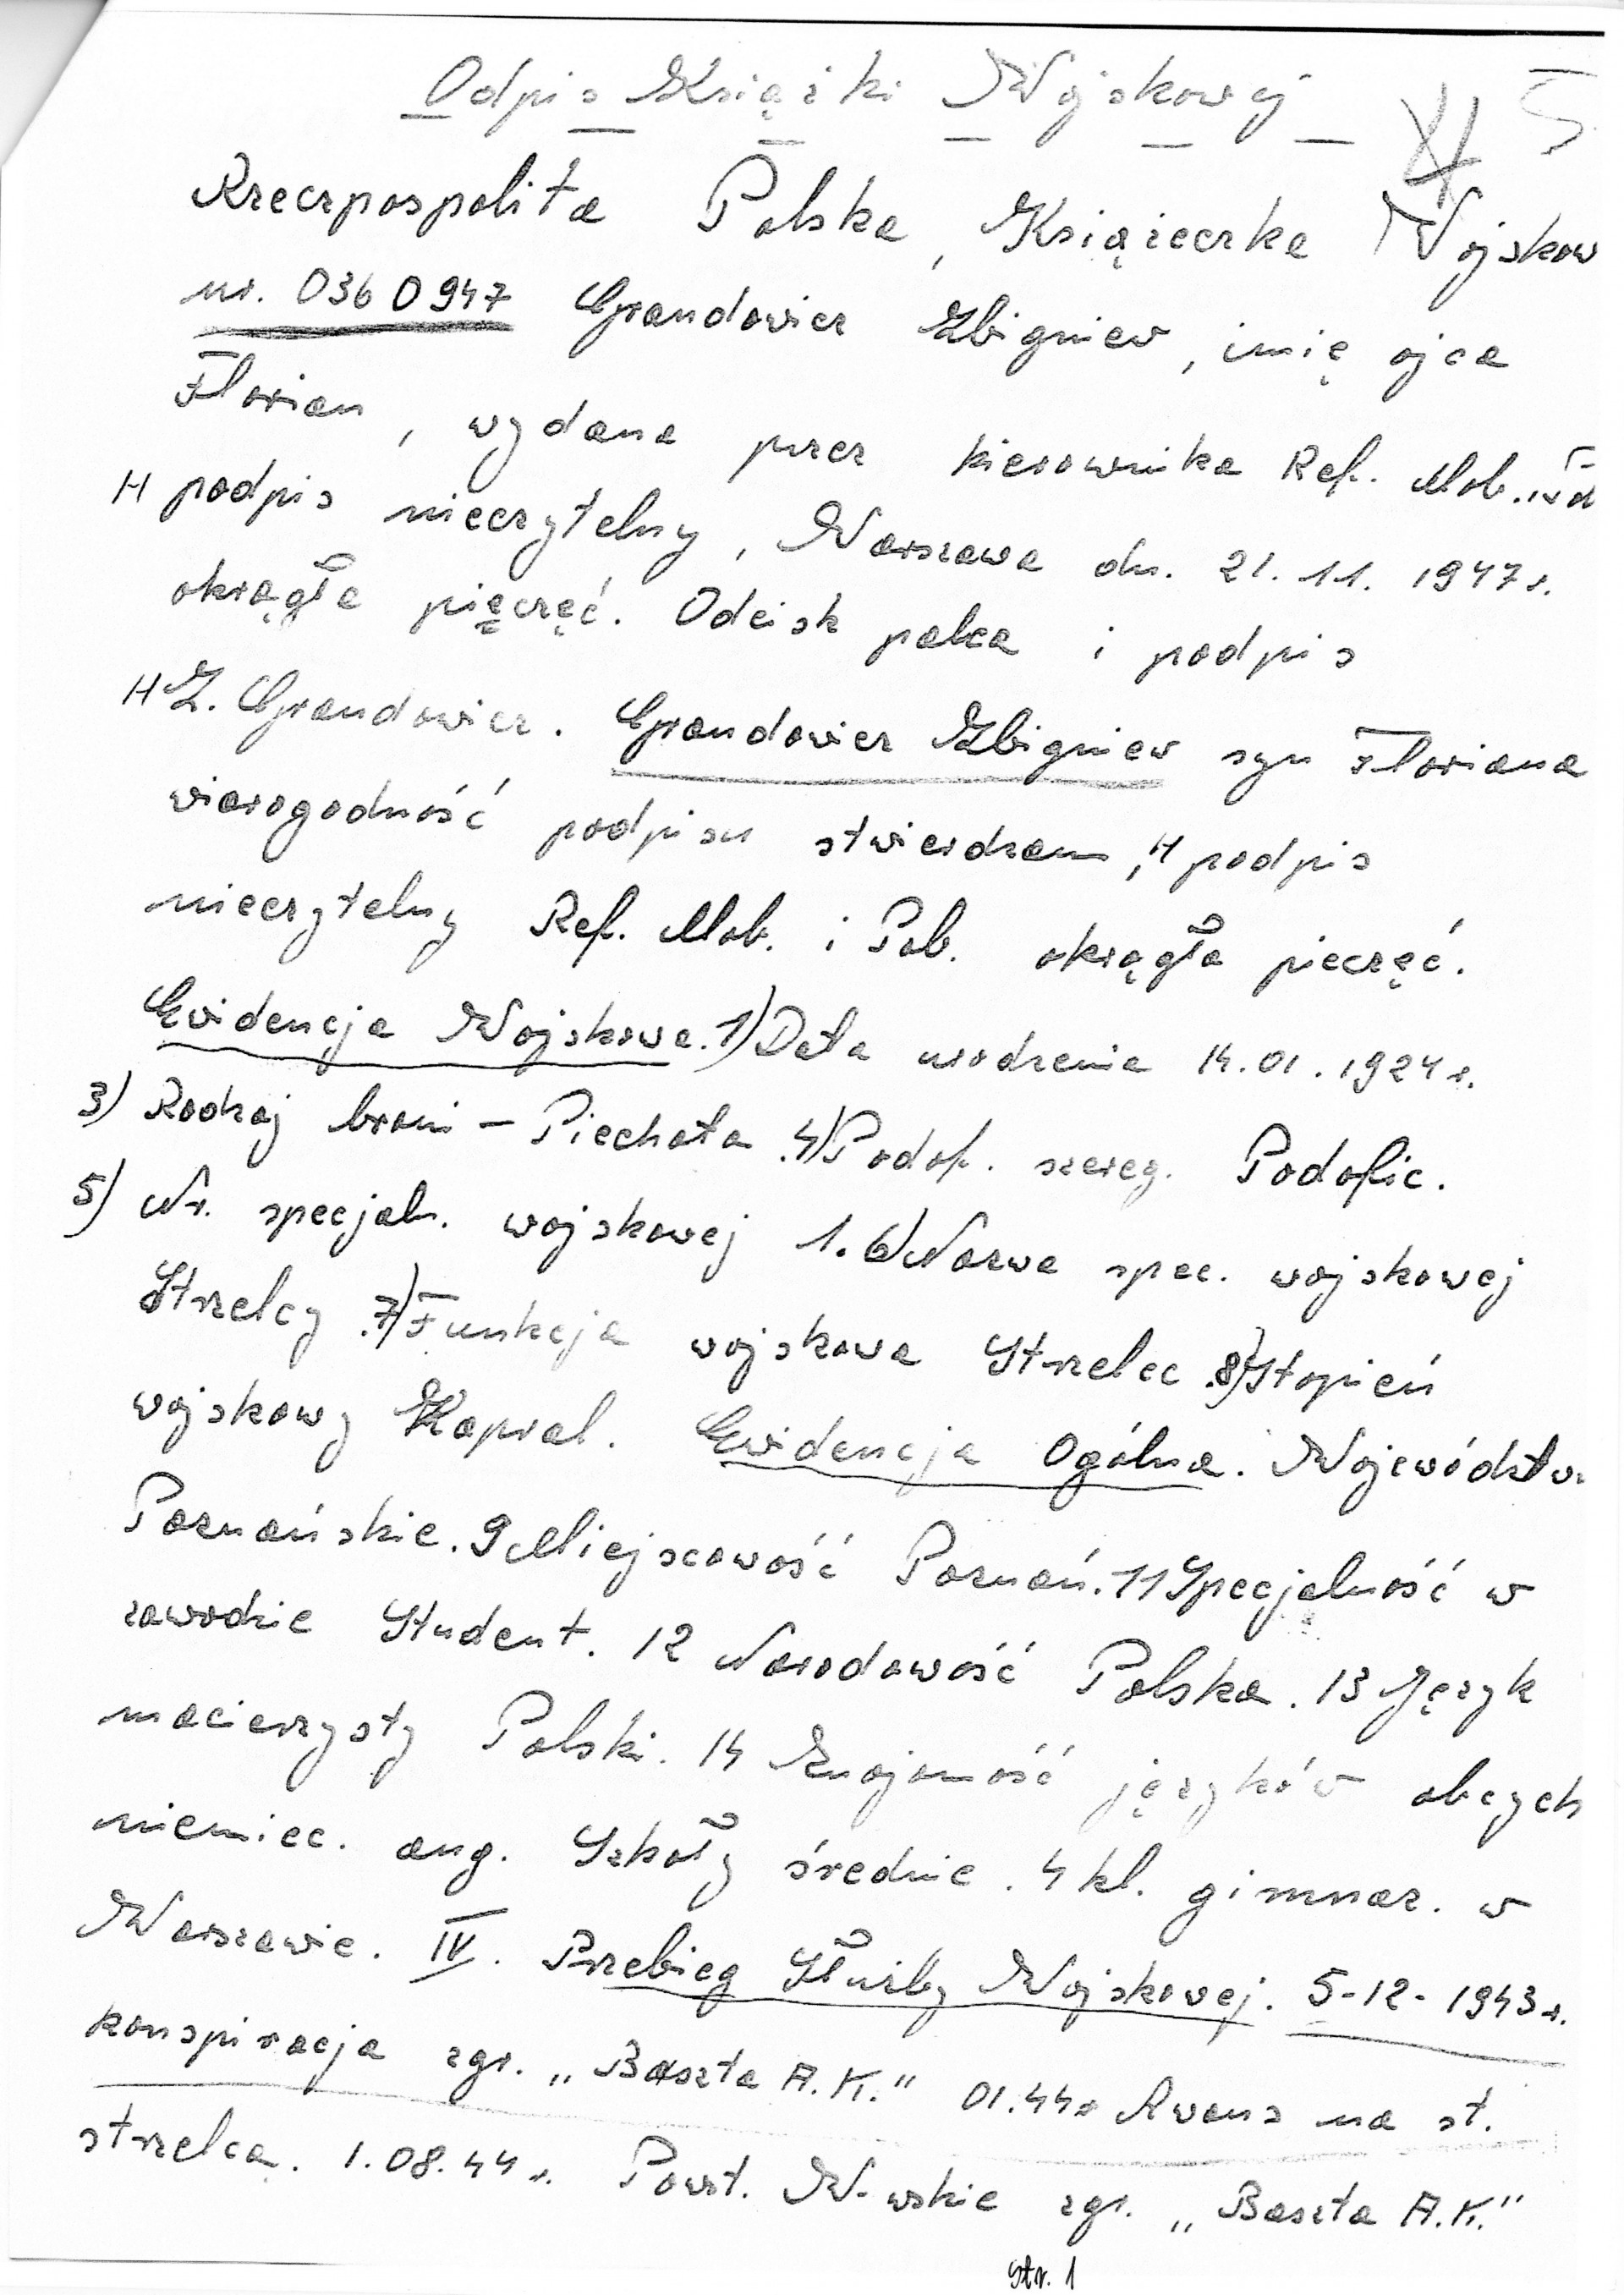 Odpis Książki Wojskowej
Rzeczpospolita Polska, Książeczka Wojskow
nr. 0360947 Grandowicz Zbigniew, imię ojca
Florian, wydana przez kierownika Ref. Mob.
H podpis nieczytelny, Warszawa dn. 21.11.1947r.
okrągła pięczęć. Odcisk palca i podpis
H Z. Grandowicz. Grandowicz Zbigniew syn Floriana
wiarogodność podpisu stwierdzam, H podpis
nieczytelny Ref. Mob. i Pob. okrągła pieczęć.
Ewidencja Wojskowa. 1) Data urodzenia 14.01.1924r.
3) Rodzaj broni – Piechota. 4) Podof. szereg. Podofic.
5) Nr. specjaln. wojskowej 1. 6) Nazwa spec. wojskowej
Strzelcy. 7) Funkcja wojskowa Strzelec. 8) Stopień
wojskowy Kapral. Ewidencja Ogólna. Województw
Poznańskie. 9 Miejscowość Poznań. 11 Specjalność w
zawodzie Student. 12 Narodowość Polska. 13 Język
macierzysty Polski. 14 Znajomość języków obcych
niemiec. ang. Szkoły średnie. 4 kl. gimnaz. w
Warszawie. IV. Przebieg Służby Wojskowej. 5-12-1943r.
konspiracja zgr. „Baszta A.K." 01.44r Awans na st.
strzelca. 1.08.44r. Powst. W-wskie zgr. „Baszta A.K."
Str. 1